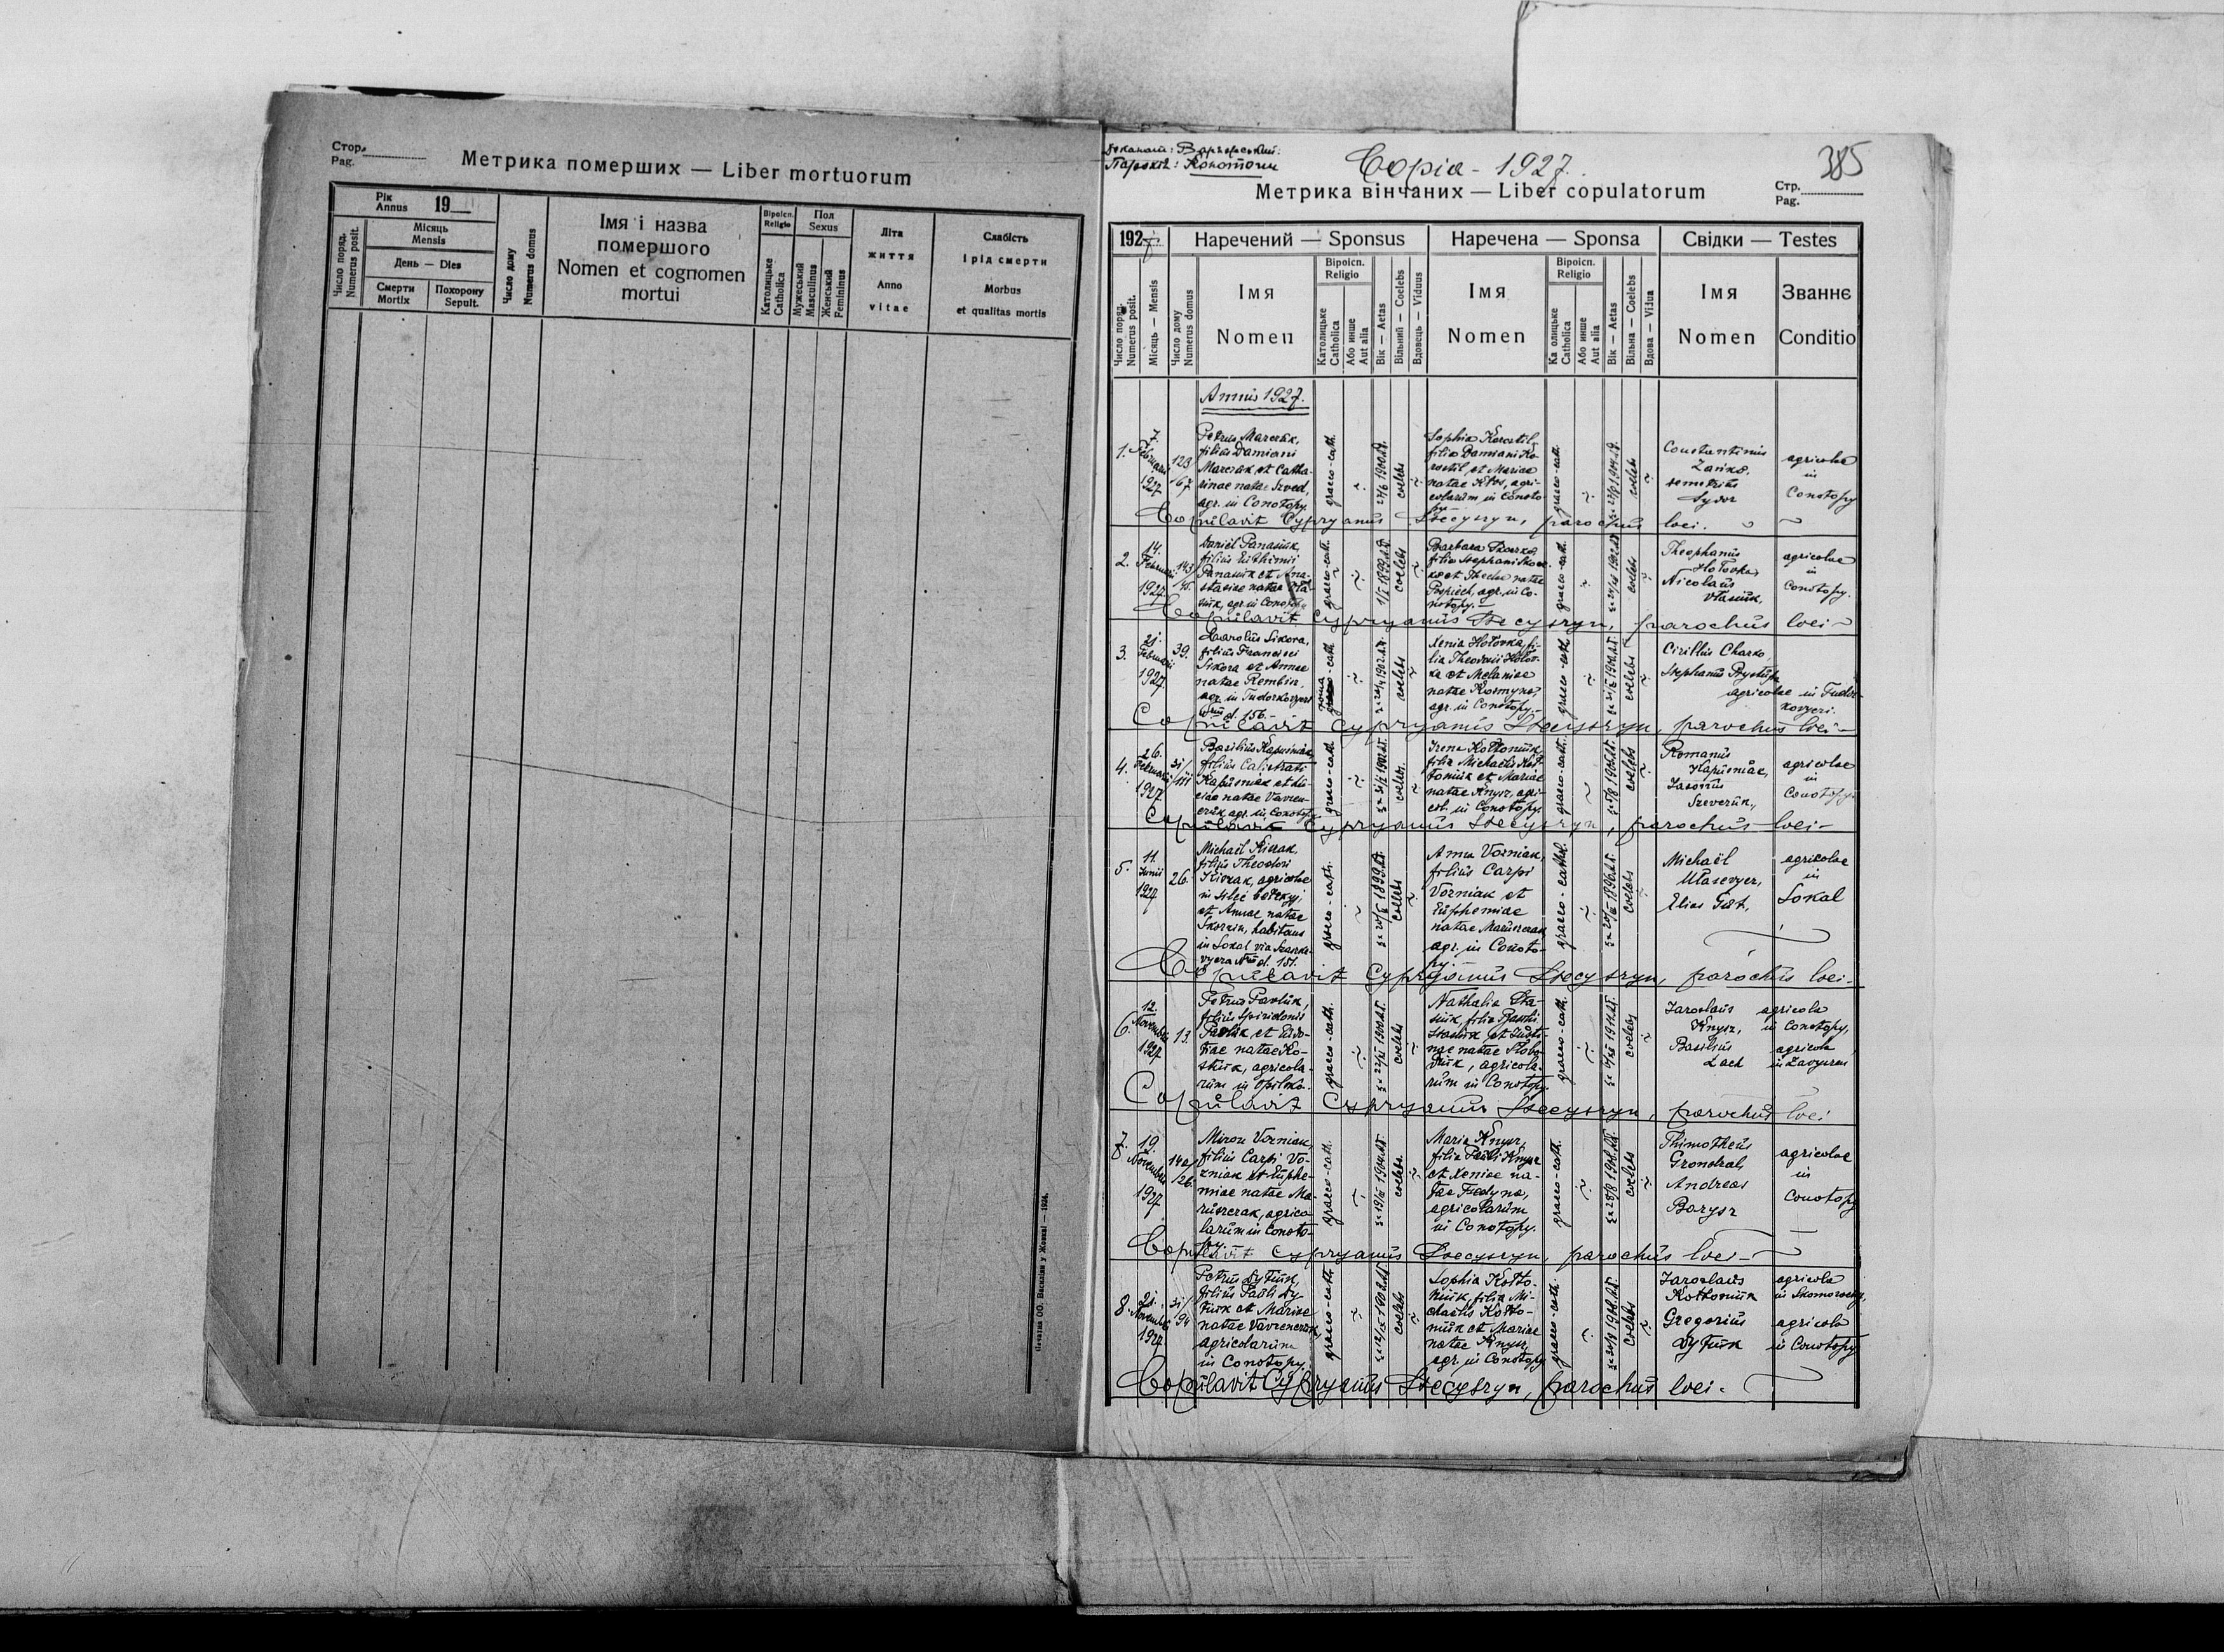 Стор.
Pag.
Метрика померших — Liber mortuorum
Рік
Annus 19
Число поряд.
Numerus posit.
Місяць
Mensis
День — Dies
Смерти
Mortix
Похорону
Sepult.
Число дому
Numerus domus
Імя і назва
помершого
Nomen et cognomen
mortui
Віроісп.
Religio
Католицьке
Catholica
Пол
Sexus
Мужеський
Masculinus
Женський
Femininus
Літа
життя
Anno
vitae
Слабість
і рід смерти
Morbus
et qualitas mortis
Печатня ОО. Василіян у Жовкві — 1924.
Парохія: Конотопи
Copia - 1927.
385
Метрика вінчаних — Liber copulatorum
Стр.
Pag.
1927
Наречений — Sponsus
Наречена — Sponsa
Свідки — Testes
Число поряд.
Numerus posit.
Місяць — Mensis
Число дому
Numerus domus
Імя
Nomen
Віроісп.
Religio
Католицьке
Catholica
Або инше
Aut alia
Вік — Aetas
Вільний — Coelebs
Вдовець — Viduus
Імя
Nomen
Віроісп.
Religio
Ка олицьке
Catholica
Або инше
Aut alia
Вік — Aetas
Вільна — Coelebs
Вдова — Vidua
Імя
Nomen
Званнє
Conditio
Annus 1927.
1.
7.
Februarii
1927
123
67
Petrus Marczuk,
filius Damiani
Marczuk et Catha-
rinae natae Szved,
agr. in Conotopy.
graeco-cath.
coelebs
Sophia Korostil,
filia Damiani Ko-
rostil et Mariae
natae Kłos, agri-
colarum in Conoto-
py.
graeco-cath.
coelebs
Constantinus
Zańko,
Demetrius
Sydor
agricolae
in
Conotopy
Copulavit Cypryanus Stecyszyn, parochus loci.
2.
14.
Februarii
1927.
Daniel Panasiuk,
filius Euthimii
Panasiuk et Ana-
stasiae natae Sta-
siuk, agr. in Conotopy
graeco-cath.
coelebs
Barbara Skorko,
filia Stephani Skor-
ko et Theclae natae
Pospiech, agr. in Co-
notopy.—
graeco-cath.
coelebs
Theophanus
Hołovka,
Nicolaus
Vłasiuk,
agricolae
in
Conotopy.
Copulavit Cypryanus Stecyszyn, parochus loci
3.
21.
Februarii
1927
39.
Carolus Sikora,
filius Francisci
Sikora et Annae
natae Rembisz,
agr. in Tudorkovyczi
d. 156.
coelebs
Xenia Hołovka, fi-
lia Theodorii Hołov-
ka et Melaniae
natae
agr. in Conotopy.—
graeco-cath.
coelebs
Cirillus Charko,
Stephanus Prystupa
agricolae in Tudor-
kovyczi.
Copulavit Cypryanus Stecyszyn, parochus loci—
4.
26.
Februarii
1927
31/111
Basilius Kapuśniak,
filius Calistrati
Kapuśniak et Lu-
ciae natae Vavren-
czuk agr. in Conotopy
graeco-cath.
coelebs.
Irena Kołtoniuk,
filia Michaelis Koł-
toniuk et Mariae
natae Knysz, agri-
col. in Conotopy.
graeco-cath.
coelebs
Romanus
Kapuśniak,
Iasonus
Szevczuk,
agricolae
in
Conotopy
Copulavit Cypryanus Stecyszyn, parochus loci—
5.
11.
Iunii
1927
26.
Michaël Kiczak
filius Theodori
Kiczak, agricolae
in Silec bełzkyj
et Annae natae
habitans
in Sokal via
d. 151.
graeco-cath.
coelebs
Anna Vozniak,
filius Carpi
Vozniak et
Euphemiae
natae Maruszczak
agr. in Conoto-
py.
graeco-cathol.
coelebs
Michaël
Elias
agricolae
in
Sokal
Copulavit Cypryanus Stecyszyn, parochus loci—
6.
12.
Novembris
1927
13.
Petrus Pavluk,
filius Spiridonis
Pavluk et Eudo-
kiae natae Ko-
stiuk, agricola-
rum in Opilsko.
graeco-cath.
coelebs
Nathalia Sta-
siuk, filia Basilii
Stasiuk et Iusti-
nae natae Słobo-
dziuk, agricola-
rum in Conotopy.
graeco-cath.
coelebs
Iaroslaus
Knysz,
Basilius
Lach
agricola
in Conotopy,
agricola
in Zavyszeń
Copulavit Cypryanus Stecyszyn, parochus loci
7.
19.
Novembris
1927.
140/26.
Miron Vozniak,
filius Carpi Vo-
zniak et Euphe-
miae natae Ma-
ruszczak, agrico
larum in Conoto-
py.
graeco-cath.
coelebs.
Maria Knysz,
filia Pauli Knysz
et Xeniae na-
tae Fedyna,
agricolarum
in Conotopy.
graeco-cath.
coelebs
Thimotheus
Grondzal,
Andreas
Barysz
agricolae
in
Conotopy
Copulavit Cypryanus Stecyszyn, parochus loci—
8.
21.
Novembris
1927
31/94
Petrus Dytiuk,
filius Pauli Dy-
tiuk et Mariae
natae Vavrenczuk
agricolarum
in Conotopy.
graeco-cath.
coelebs
Sophia Kołto-
niuk, filia Mi-
chaelis Kołto-
niuk et Mariae
natae Knysz,
agr. in Conotopy
graeco-cath.
coelebs
Iaroslaus
Kołtoniuk
Gregorius
Dytiuk
agricola
in Skomorochy,
agricola
in Conotopy
Copulavit Cypryanus Stecyszyn, parochus loci.